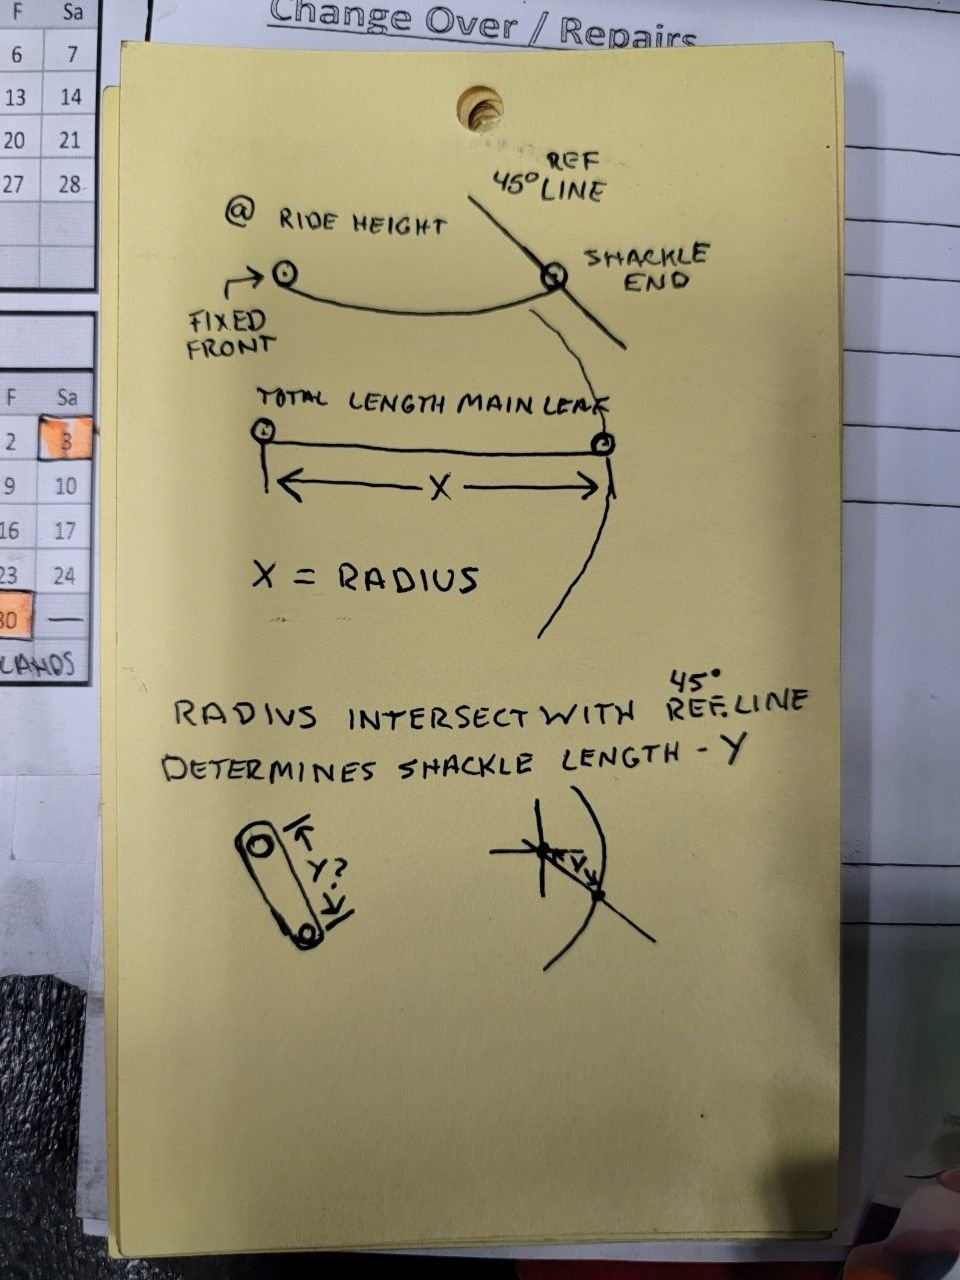 Change Over / Repairs
F Sa
6 7
13 14
20 21
27 28
F Sa
2 3
9 10
16 17
23 24
30 —
LANDS
REF
45° LINE
@ RIDE HEIGHT
SHACKLE
END
FIXED
FRONT
TOTAL LENGTH MAIN LEAF
X
X = RADIUS
45°
RADIUS INTERSECT WITH REF. LINE
DETERMINES SHACKLE LENGTH - Y
Y?
Y